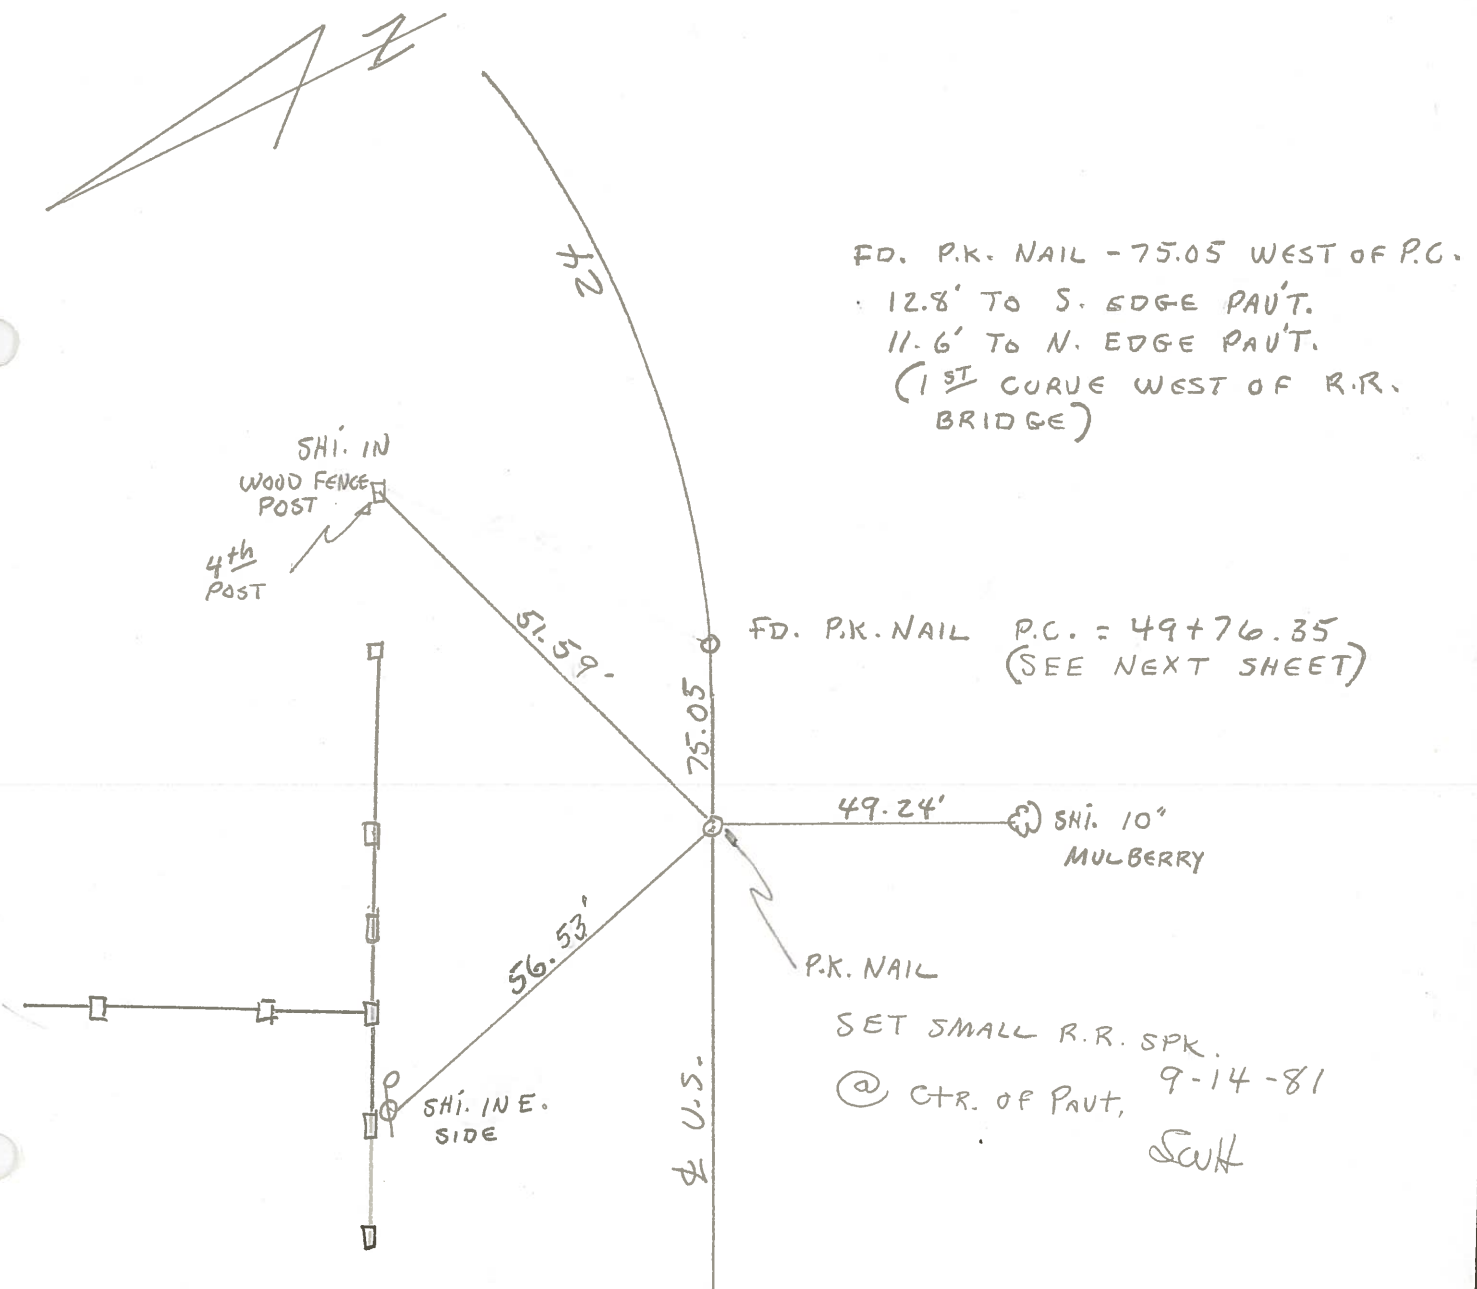 N
24
FD. P.K. NAIL - 75.05 WEST OF P.C.
12.8' TO S. EDGE PAV'T.
11.6' TO N. EDGE PAV'T.
(1ST CURVE WEST OF R.R.
BRIDGE)
SHi. IN
WOOD FENCE
POST
4th
POST
51.59'
FD. P.K. NAIL P.C. = 49+76.35
(SEE NEXT SHEET)
75.05
49.24'
SHi. 10"
MULBERRY
56.53'
P.K. NAIL
SET SMALL R.R. SPK.
@ CtR. OF PAVt, 9-14-81
SHi. IN E.
SIDE
℄ U.S.